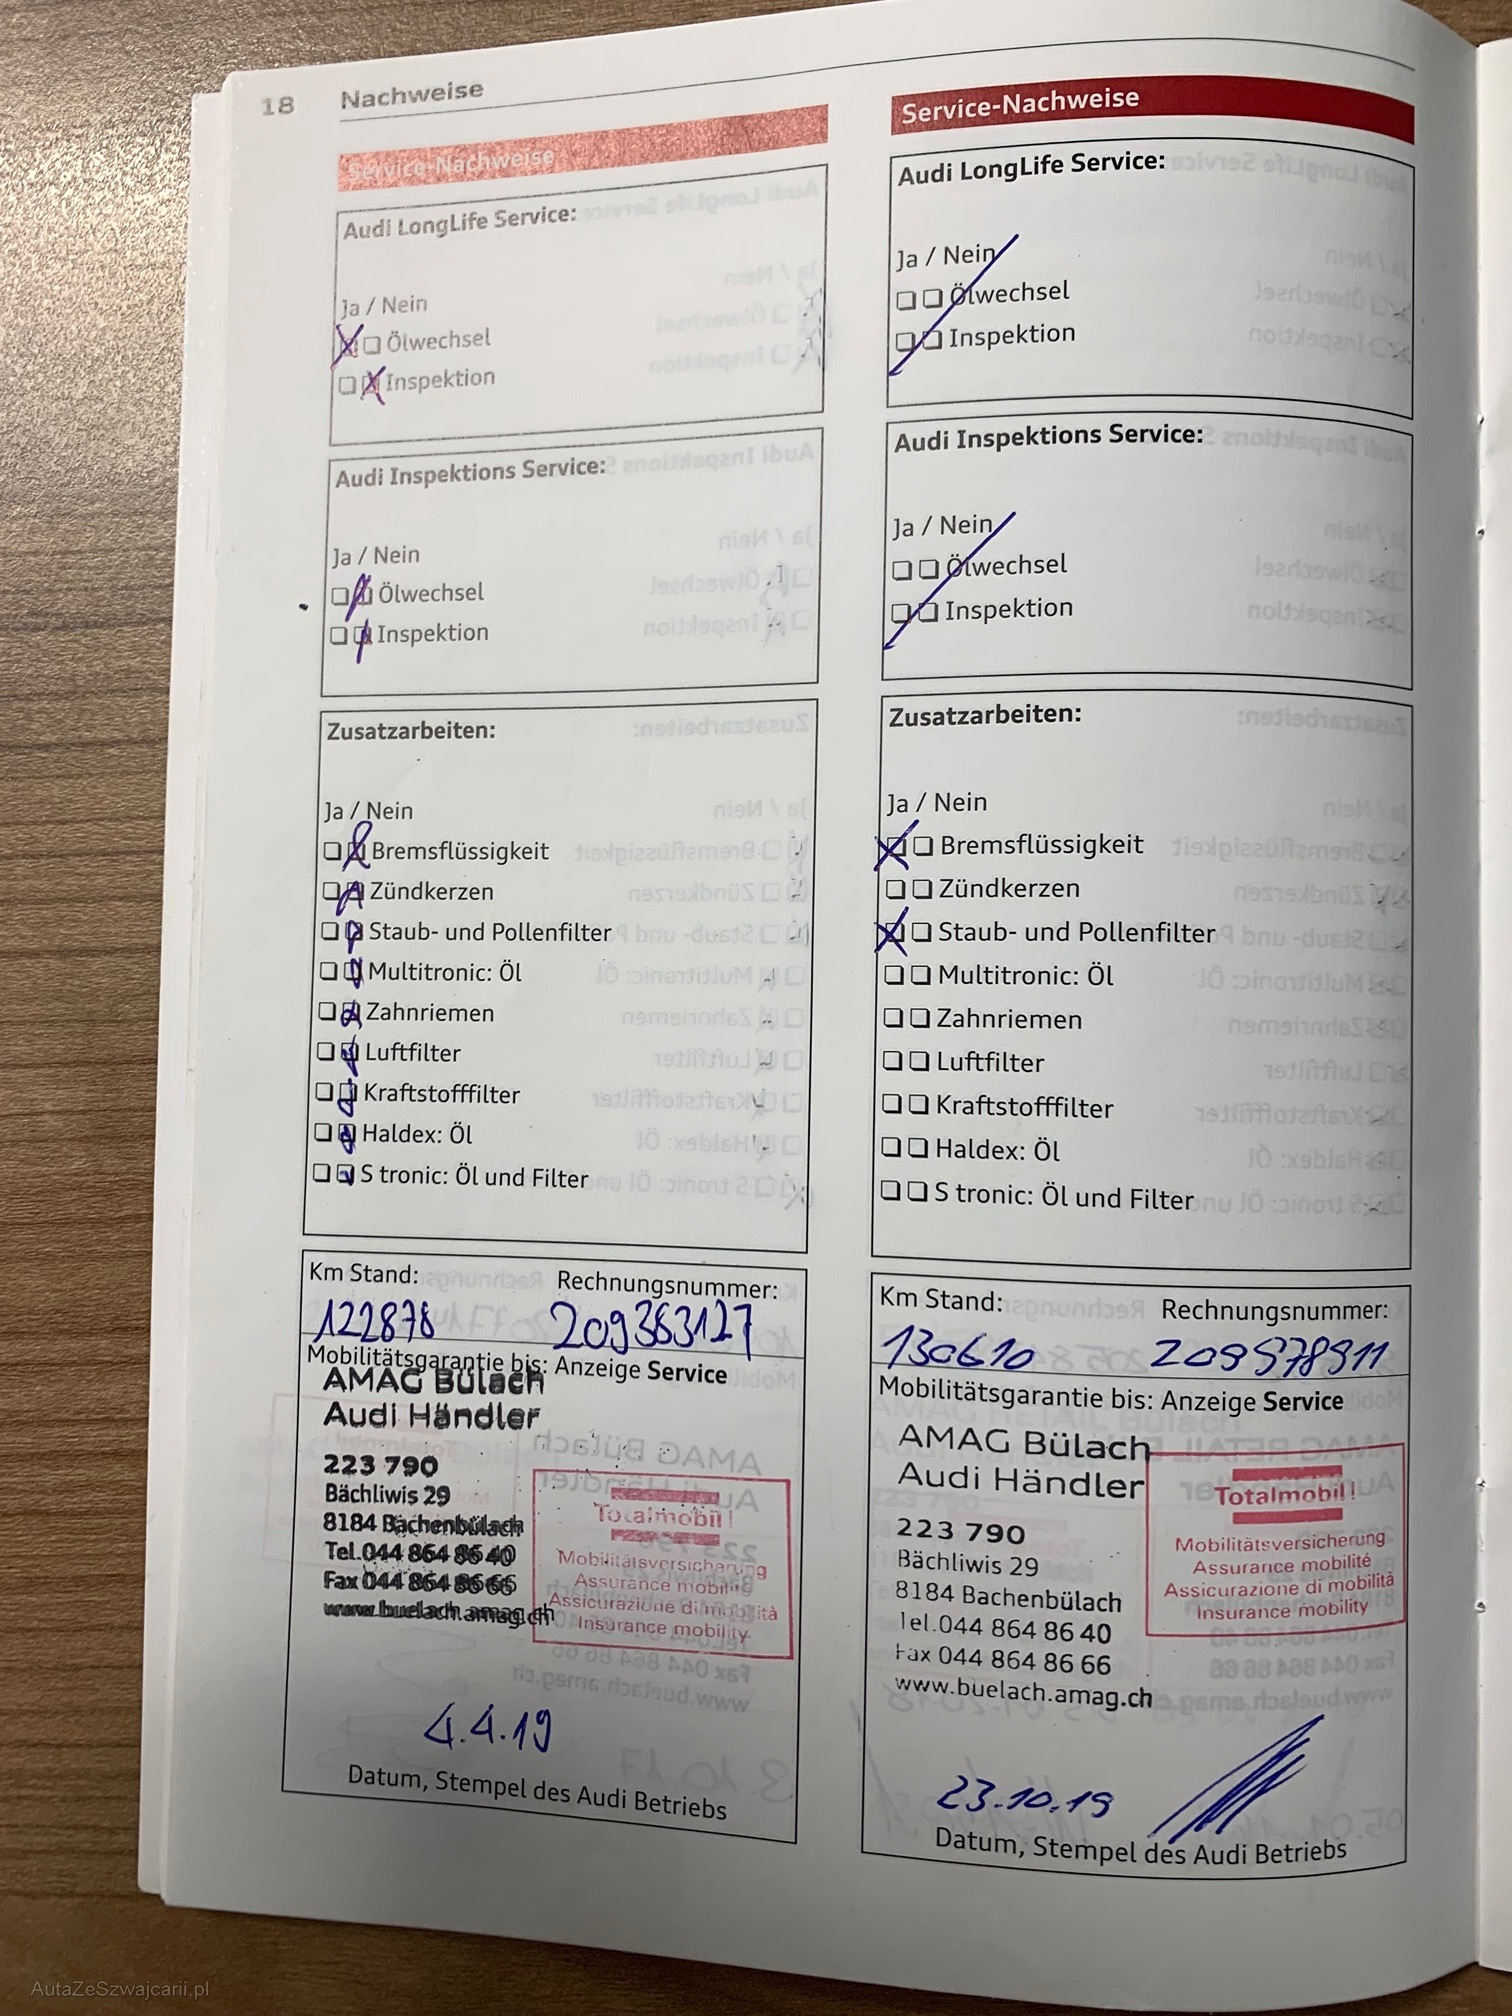 18 Nachweise
Service-Nachweise
Audi LongLife Service:
Ja / Nein
Ölwechsel
Inspektion
Audi Inspektions Service:
Ja / Nein
Ölwechsel
Inspektion
Zusatzarbeiten:
Ja / Nein
Bremsflüssigkeit
Zündkerzen
Staub- und Pollenfilter
Multitronic: Öl
Zahnriemen
Luftfilter
Kraftstofffilter
Haldex: Öl
S tronic: Öl und Filter
Km Stand: Rechnungsnummer:
122878 209363127
Mobilitätsgarantie bis: Anzeige Service
AMAG Bülach
Audi Händler
223 790
Bächliwis 29
8184 Bachenbülach
Tel.044 864 86 40
Fax 044 864 86 66
www.buelach.amag.ch
Totalmobil!
Mobilitätsversicherung
Assurance mobilité
Assicurazione di mobilità
Insurance mobility
4.4.19
Datum, Stempel des Audi Betriebs
Service-Nachweise
Audi LongLife Service:
Ja / Nein
Ölwechsel
Inspektion
Audi Inspektions Service:
Ja / Nein
Ölwechsel
Inspektion
Zusatzarbeiten:
Ja / Nein
Bremsflüssigkeit
Zündkerzen
Staub- und Pollenfilter
Multitronic: Öl
Zahnriemen
Luftfilter
Kraftstofffilter
Haldex: Öl
S tronic: Öl und Filter
Km Stand: Rechnungsnummer:
130610 209578911
Mobilitätsgarantie bis: Anzeige Service
AMAG Bülach
Audi Händler
223 790
Bächliwis 29
8184 Bachenbülach
Tel.044 864 86 40
Fax 044 864 86 66
www.buelach.amag.ch
Totalmobil!
Mobilitätsversicherung
Assurance mobilité
Assicurazione di mobilità
Insurance mobility
23.10.19
Datum, Stempel des Audi Betriebs
AutaZeSzwajcarii.pl